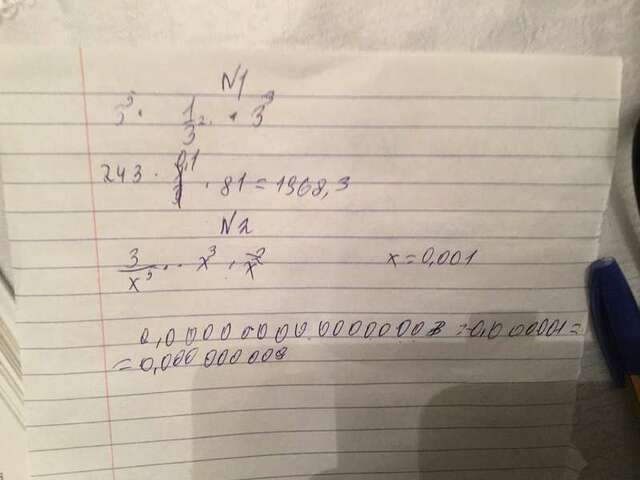 N1
3⁵ · 1/3² · 3³
243 · 0,1 · 81 = 1968,3
N2
3/x⁵ · x³ · x = 0,001
0,00000000000000003 : 0,000001 =
= 0,000 000 003